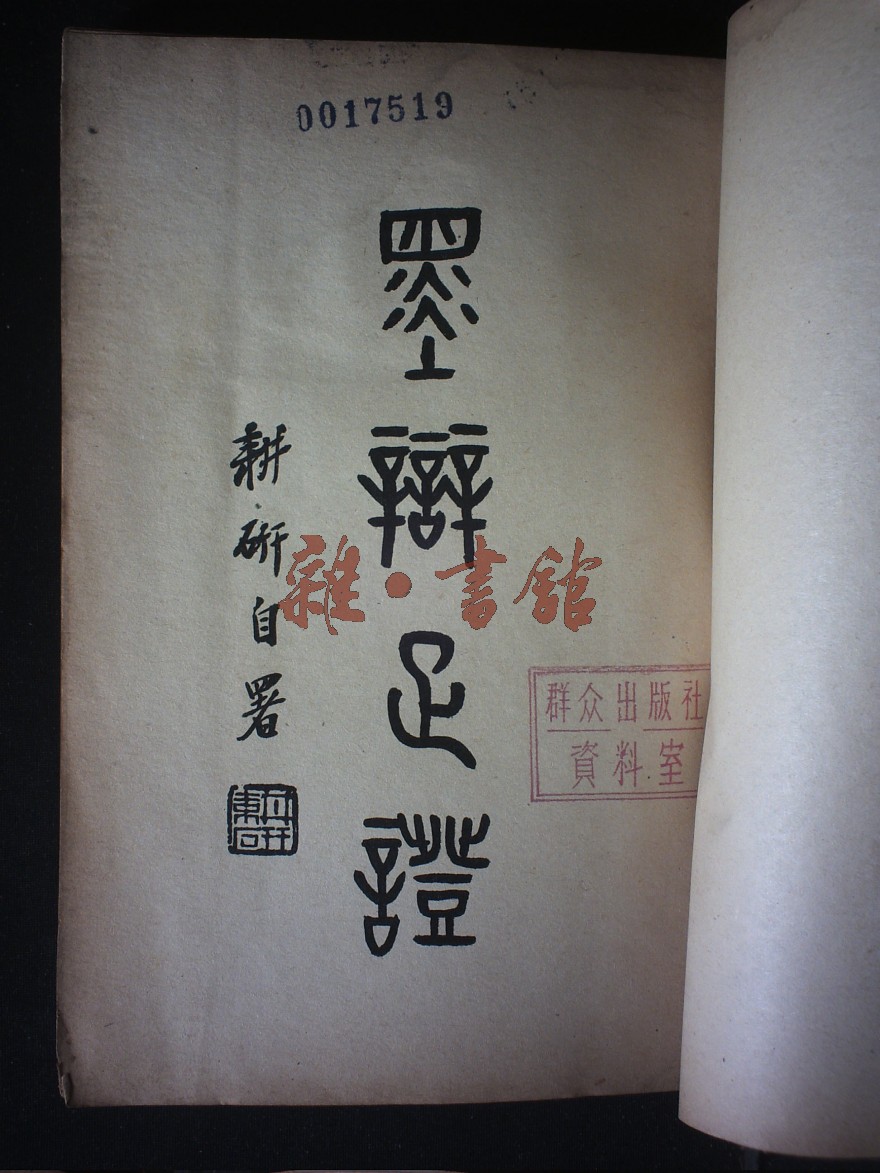 0017519
墨辯疋證
耕研自署
雜·書館
群众出版社
資料室